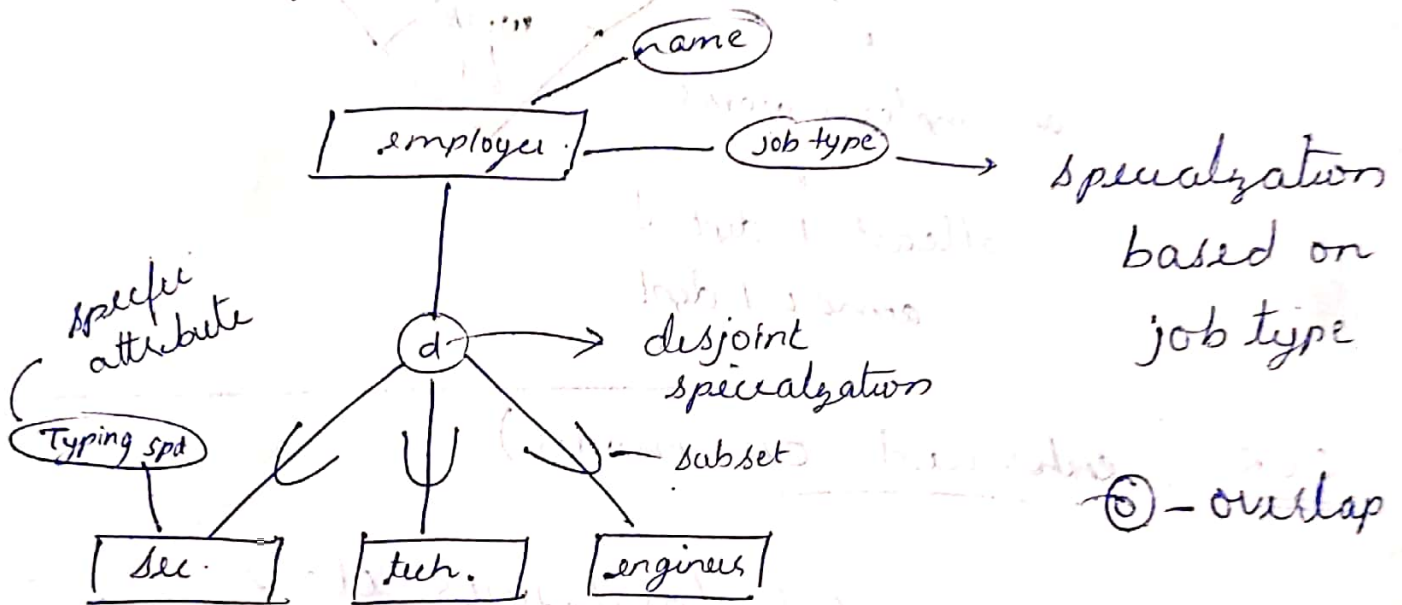 name
employee
job type
specialzation
based on
job type
specific
attribute
d
disjoint
specialzation
Typing spd
subset
o - overlap
sec.
tech.
engineers